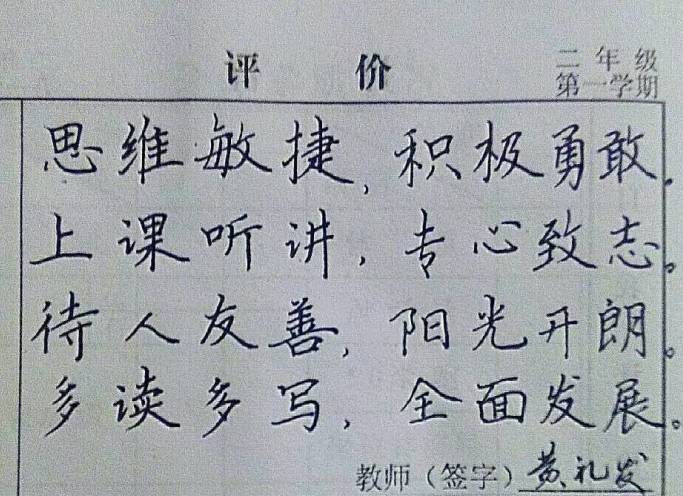 评 价
二年级
第一学期
思维敏捷,积极勇敢.
上课听讲,专心致志。
待人友善,阳光开朗。
多读多写,全面发展。
教师（签字）黄礼发